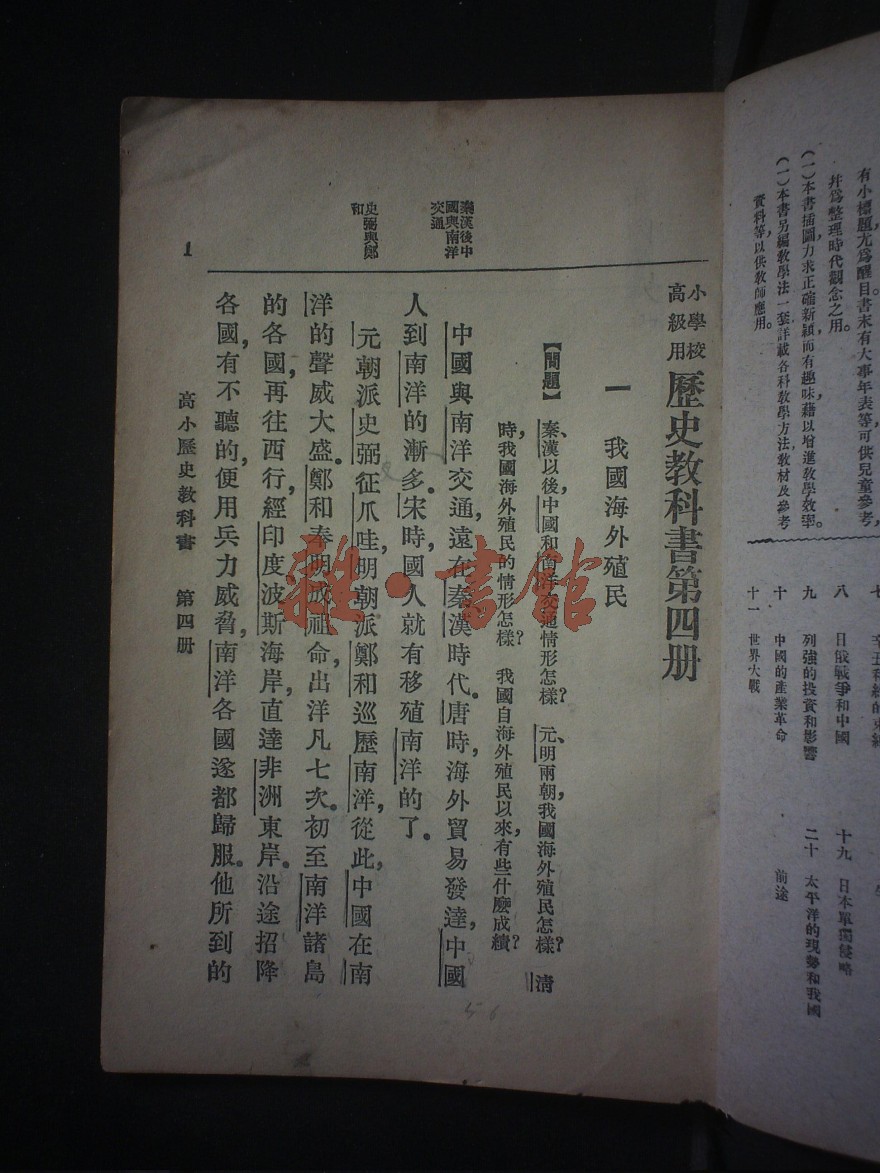 有小標題尤爲醒目書末有大事年表等可供兒童參考，
幷爲整理時代觀念之用。
（一）本書插圖力求正確新穎而有趣味藉以增進教學效率。
（一）本書另編教學法一套詳載各科教學方法教材及參考
資料等以供教師應用。
八　日俄戰爭和中國
九　列強的投資和影響
十　中國的產業革命
十一　世界大戰
十九　日本單獨侵略
二十　太平洋的現勢和我國
前途
小學校
高級用
歷史教科書第四册
一　我國海外殖民
【問題】秦、漢以後，中國和南洋交通情形怎樣？　元、明兩朝，我國海外殖民怎樣？　清
時，我國海外殖民的情形怎樣？　我國自海外殖民以來，有些什麼成績？
秦漢後中
國與南洋
交通
中國與南洋交通，遠在秦漢時代。唐時，海外貿易發達，中國
人到南洋的漸多。宋時，國人就有移殖南洋的了。
史弼與鄭
和
元朝派史弼征爪哇，明朝派鄭和巡歷南洋，從此，中國在南
洋的聲威大盛。鄭和奉明成祖命，出洋凡七次。初至南洋諸島
的各國，再往西行，經印度波斯海岸，直達非洲東岸。沿途招降
各國，有不聽的，便用兵力威脅，南洋各國遂都歸服。他所到的
高小歷史教科書　第四册
1
雜·書館